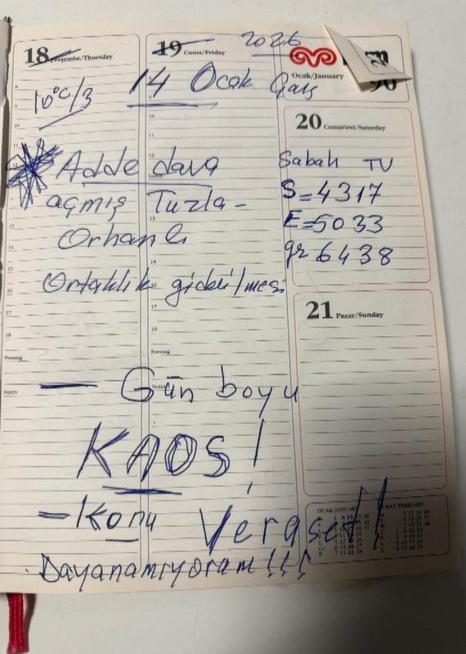 18 Perşembe/Thursday
19 Cuma/Friday
2026
Ocak/January
14 Ocak Çarş
10°C/3
20 Cumartesi/Saturday
Adde dava
açmış Tuzla-
Orhanlı
Ortaklık giderilmesi
Sabah TV
S=4317
E=5033
gr 6438
21 Pazar/Sunday
Evening
Evening
Notes
— Gün boyu
KAOS!
— Konu Veraset!!
Dayanamıyorum!!!
OCAK/JANUARY